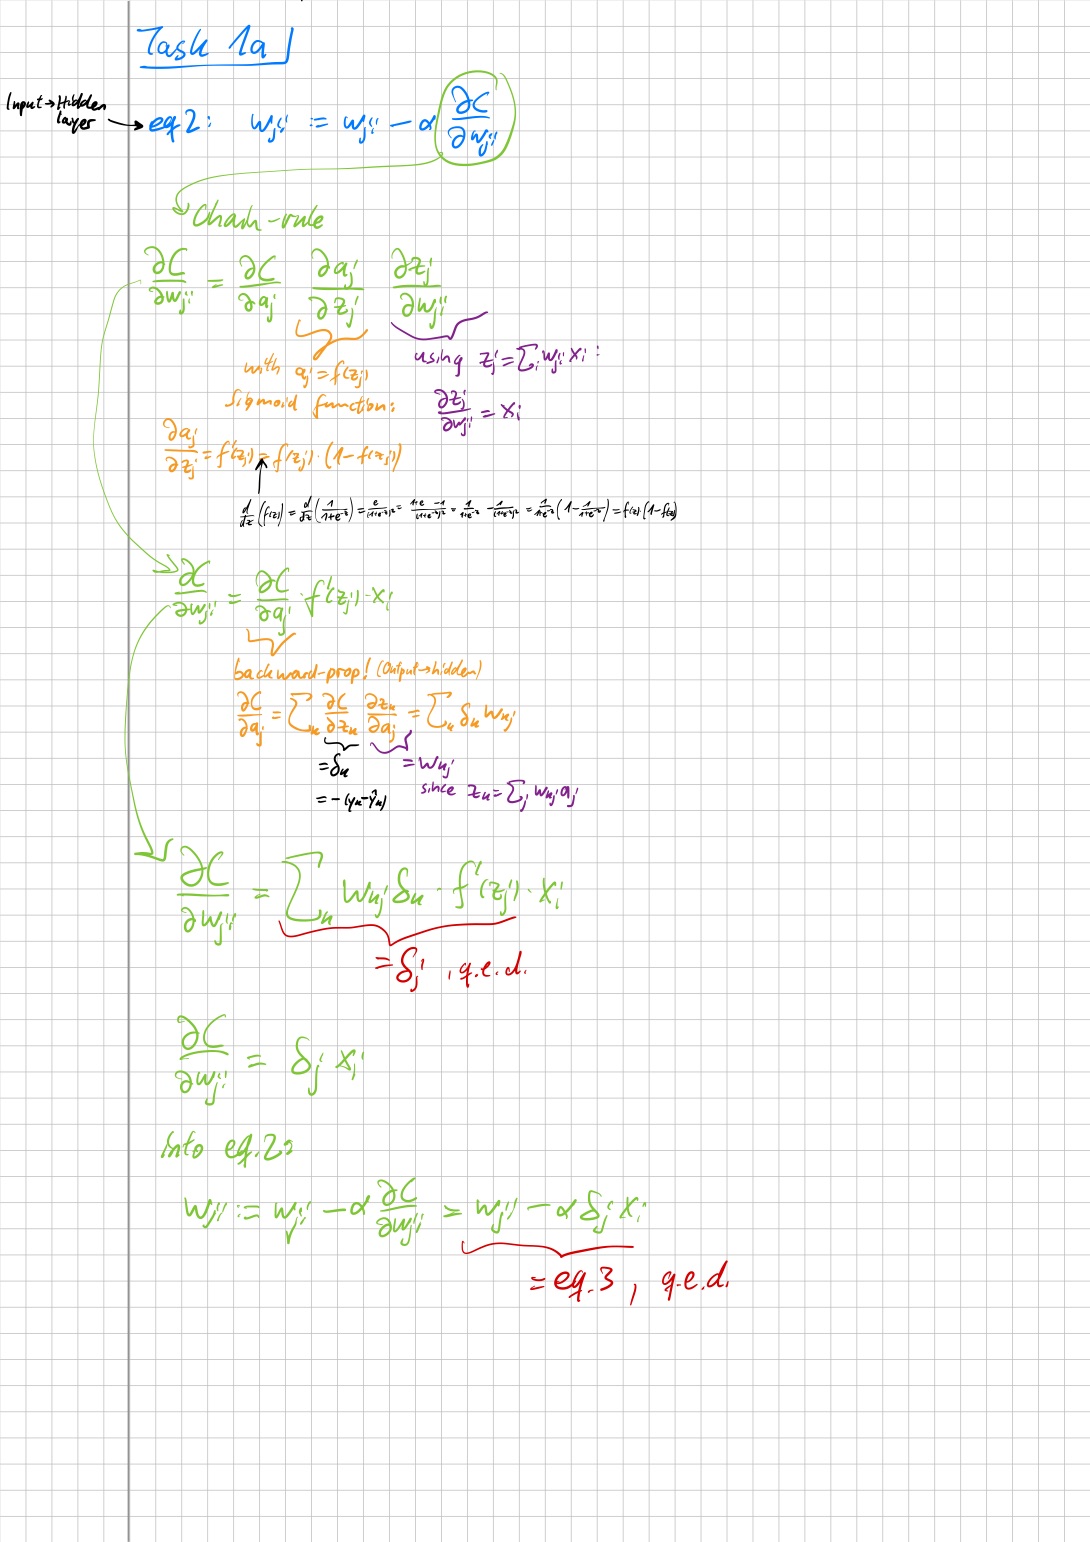 Task 1a
Input → Hidden layer → eq 2: w_ji := w_ji − α ∂C/∂w_ji
Chain-rule
∂C/∂w_ji = ∂C/∂a_j ∂a_j/∂z_j ∂z_j/∂w_ji
with a_j = f(z_j)
Sigmoid function:
∂a_j/∂z_j = f'(z_j) = f(z_j) · (1 − f(z_j))
using z_j = Σ_i w_ji x_i :
∂z_j/∂w_ji = x_i
d/dz (f(z)) = d/dz (1/(1+e^-z)) = e/(1+e^-z)² = (1+e −1)/(1+e^-z)² = 1/(1+e^-z) − 1/(1+e^-z)² = 1/(1+e^-z) (1 − 1/(1+e^-z)) = f(z) (1−f(z))
∂C/∂w_ji = ∂C/∂a_j · f'(z_j) · x_i
backward-prop! (Output → hidden)
∂C/∂a_j = Σ_k ∂C/∂z_k ∂z_k/∂a_j = Σ_k δ_k w_kj
= δ_k
= −(y_k − ŷ_k)
= w_kj
since z_k = Σ_j w_kj a_j
∂C/∂w_ji = Σ_k w_kj δ_k · f'(z_j) · x_i
= δ_j , q.e.d.
∂C/∂w_ji = δ_j x_i
into eq.2:
w_ji := w_ji − α ∂C/∂w_ji = w_ji − α δ_j x_i
= eq.3 , q.e.d.